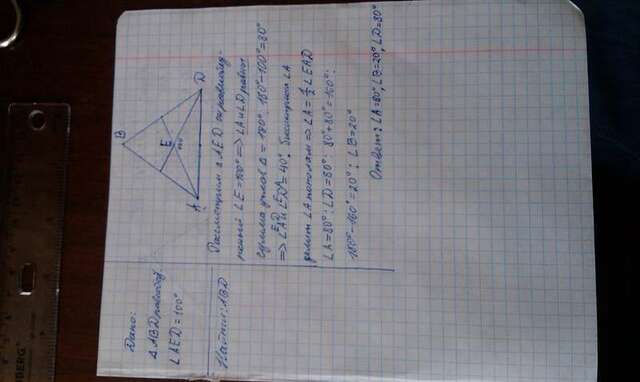 Дано:
Δ ABD равнобед.
∠AED = 100°
Найти: ABD
B
D
E
100°
A
Рассмотрим Δ AED он равнобед-
ренный ∠E = 100° => ∠A и ∠D равны
сумма углов Δ = 180°. 180° - 100° = 80°
=> ∠EAD и ∠EDA = 40°. Биссектриса ∠A
делит ∠A пополам => ∠A = ∠EAD
∠A = 80°; ∠D = 80°; 80° + 80° = 160°;
180° - 160° = 20°; ∠B = 20°
Ответ: ∠A = 80°, ∠B = 20°, ∠D = 80°